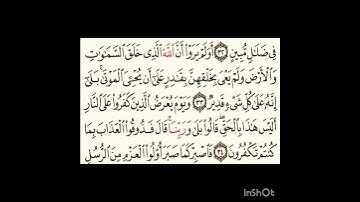 فِى ضَلَٰلٍ مُّبِينٍ ٣٢ أَوَلَمْ يَرَوْا۟ أَنَّ ٱللَّهَ ٱلَّذِى خَلَقَ ٱلسَّمَٰوَٰتِ
وَٱلْأَرْضَ وَلَمْ يَعْىَ بِخَلْقِهِنَّ بِقَٰدِرٍ عَلَىٰٓ أَن يُحْـِۧىَ ٱلْمَوْتَىٰ ۚ بَلَىٰٓ
إِنَّهُۥ عَلَىٰ كُلِّ شَىْءٍ قَدِيرٌ ٣٣ وَيَوْمَ يُعْرَضُ ٱلَّذِينَ كَفَرُوا۟ عَلَى ٱلنَّارِ
أَلَيْسَ هَٰذَا بِٱلْحَقِّ ۖ قَالُوا۟ بَلَىٰ وَرَبِّنَا ۚ قَالَ فَذُوقُوا۟ ٱلْعَذَابَ بِمَا
كُنتُمْ تَكْفُرُونَ ٣٤ فَٱصْبِرْ كَمَا صَبَرَ أُو۟لُوا۟ ٱلْعَزْمِ مِنَ ٱلرُّسُلِ
InShOt